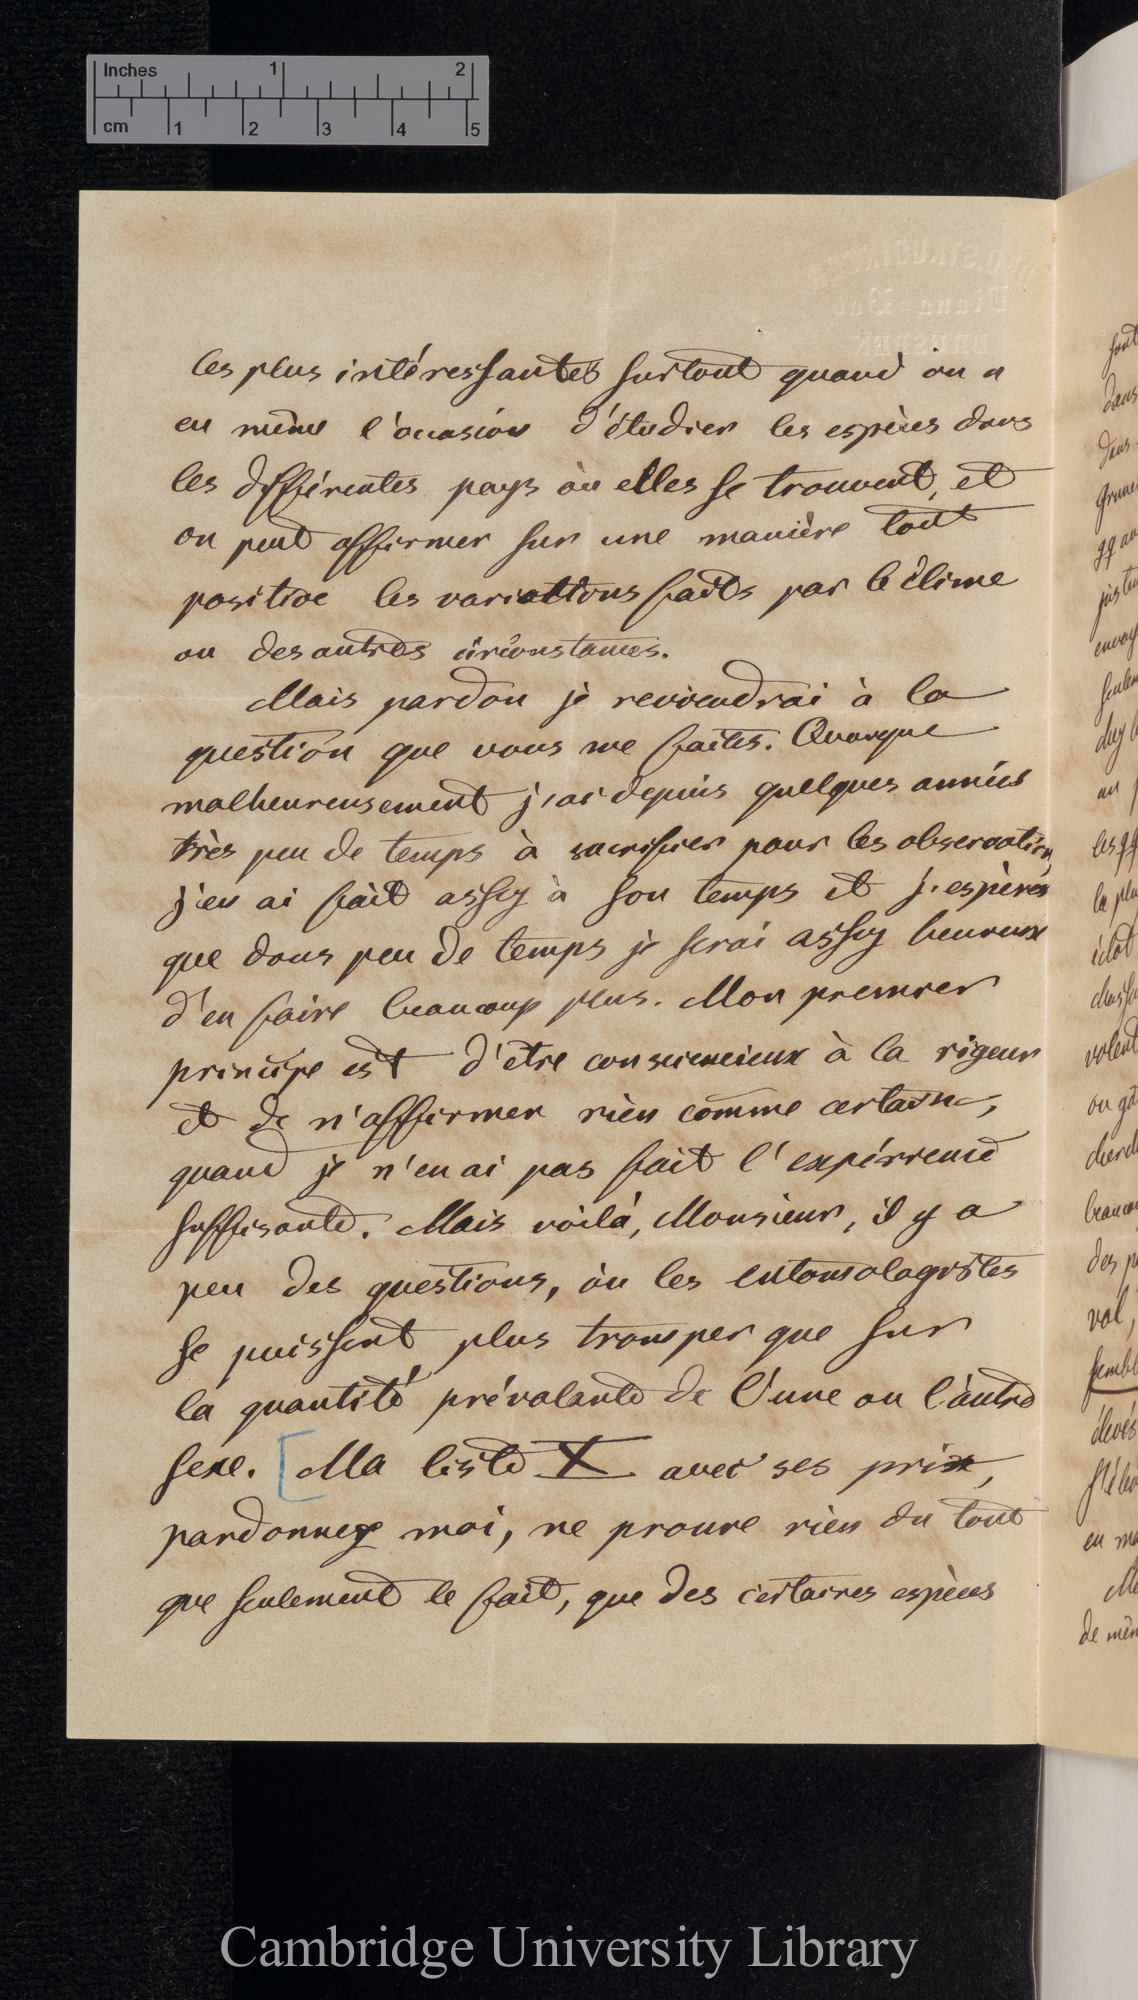 Inches 1 2
cm 1 2 3 4 5
les plus intéressantes surtout quand on a
eu même l'occasion d'étudier les espèces dans
les différentes pays où elles se trouvent, et
on peut affirmer sur une manière tout
positive les variations faits par le clime
ou des autres circonstances.
Mais pardon je reviendrai à la
question que vous me faites. Quoique
malheureusement j'ai depuis quelques années
très peu de temps à sacrifier pour les observations,
j'en ai fait assez à son temps et j'espère
que dans peu de temps je serai assez heureux
d'en faire beaucoup plus. Mon premier
principe est d'être consciencieux à la rigeur
et de n'affirmer rien comme certain,
quand je n'en ai pas fait l'expérience
suffisante. Mais voilà, Monsieur, il y a
peu des questions, où les entomologistes
se puissent plus tromper que sur
la quantité prévalante de l'une ou l'autre
sexe. [Ma liste X avec ses prix,
pardonnez moi, ne prouve rien du tout
que seulement le fait, que des certaines espèces
dans
Cambridge University Library